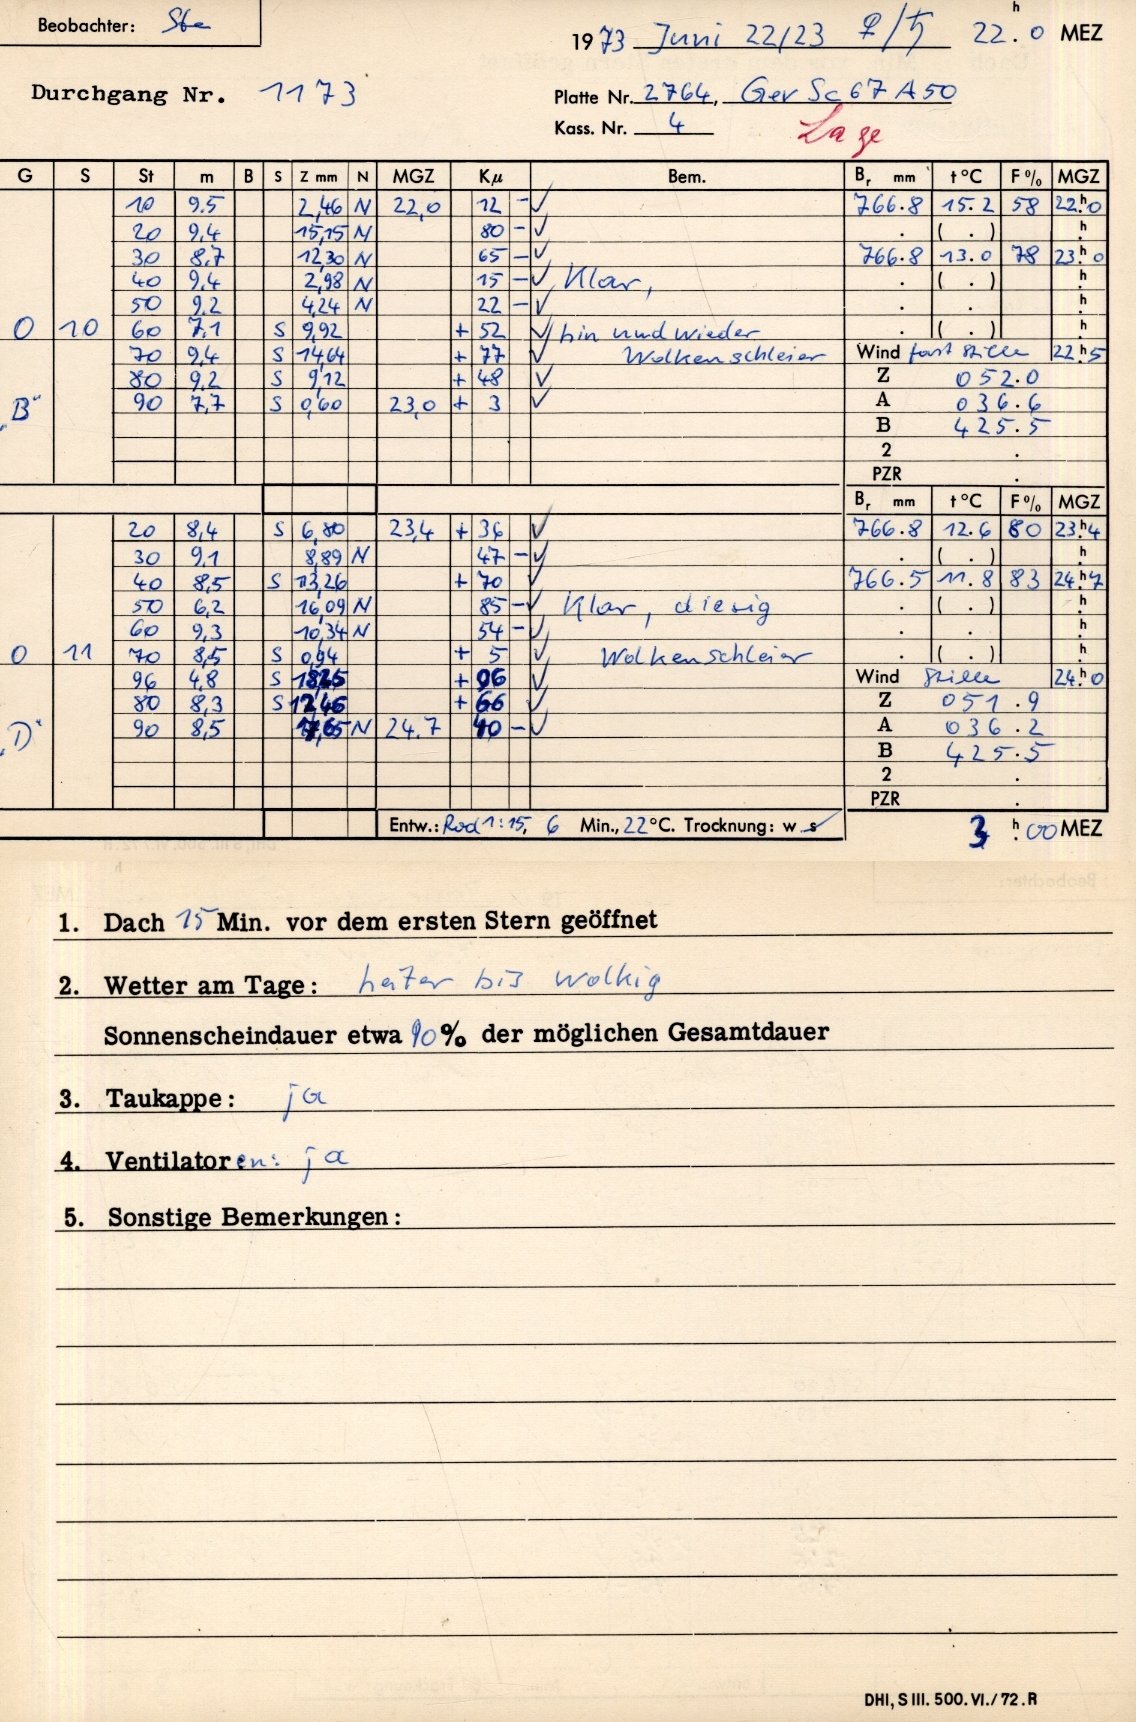 h
Beobachter: Ste
1973 Juni 22/23 ♀/♄ 22.0 MEZ
Durchgang Nr. 1173
Platte Nr. 2764, Gev Sc 67 A 50
Kass. Nr. 4
Lage
G S St m B S Z mm N MGZ Kμ Bem. Br mm t °C F % MGZ
10 9.5 2,46 N 22,0 12 - ✓ 766.8 15.2 58 22h.0
20 9,4 15,15 N 80 - ✓ . ( . ) h.
30 8,7 12,30 N 65 - ✓ 766.8 13.0 78 23h.0
40 9,4 2,98 N 15 - ✓ Klar, . ( . ) h.
50 9,2 4,24 N 22 - ✓ . . h.
O 10 60 7,1 S 9,92 + 52 ✓ hin und wieder . ( . ) h
70 9,4 S 14,64 + 77 ✓ Wolkenschleier Wind fast stille 22h.5
80 9,2 S 9,12 + 48 ✓ Z 052.0
„B“ 90 7,7 S 0,60 23,0 + 3 ✓ A 036.6
B 425.5
2 .
PZR .
Br mm t °C F % MGZ
20 8,4 S 6,80 23,4 + 36 ✓ 766.8 12.6 80 23h.4
30 9,1 8,89 N 47 - ✓ . ( . ) h.
40 8,5 S 13,26 + 70 ✓ 766.5 11.8 83 24h.7
50 6,2 16,09 N 85 - ✓ Klar, diesig . ( . ) h.
60 9,3 10,34 N 54 - ✓ . . h.
O 11 70 8,5 S 0,94 + 5 ✓ Wolkenschleier . ( . ) h.
96 4,8 S 18,25 + 96 ✓ Wind stille 24h.0
80 8,3 S 12,46 + 66 ✓ Z 051.9
„D“ 90 8,5 N 24.7 40 - ✓ A 036.2
B 425.5
2 .
PZR .
Entw.: Rod 1:15, 6 Min., 22 °C. Trocknung: w s 3 h.00 MEZ
1. Dach 15 Min. vor dem ersten Stern geöffnet
2. Wetter am Tage: heiter bis wolkig
Sonnenscheindauer etwa 90% der möglichen Gesamtdauer
3. Taukappe: ja
4. Ventilatoren: ja
5. Sonstige Bemerkungen:
DHI, S III. 500. VI./72. R